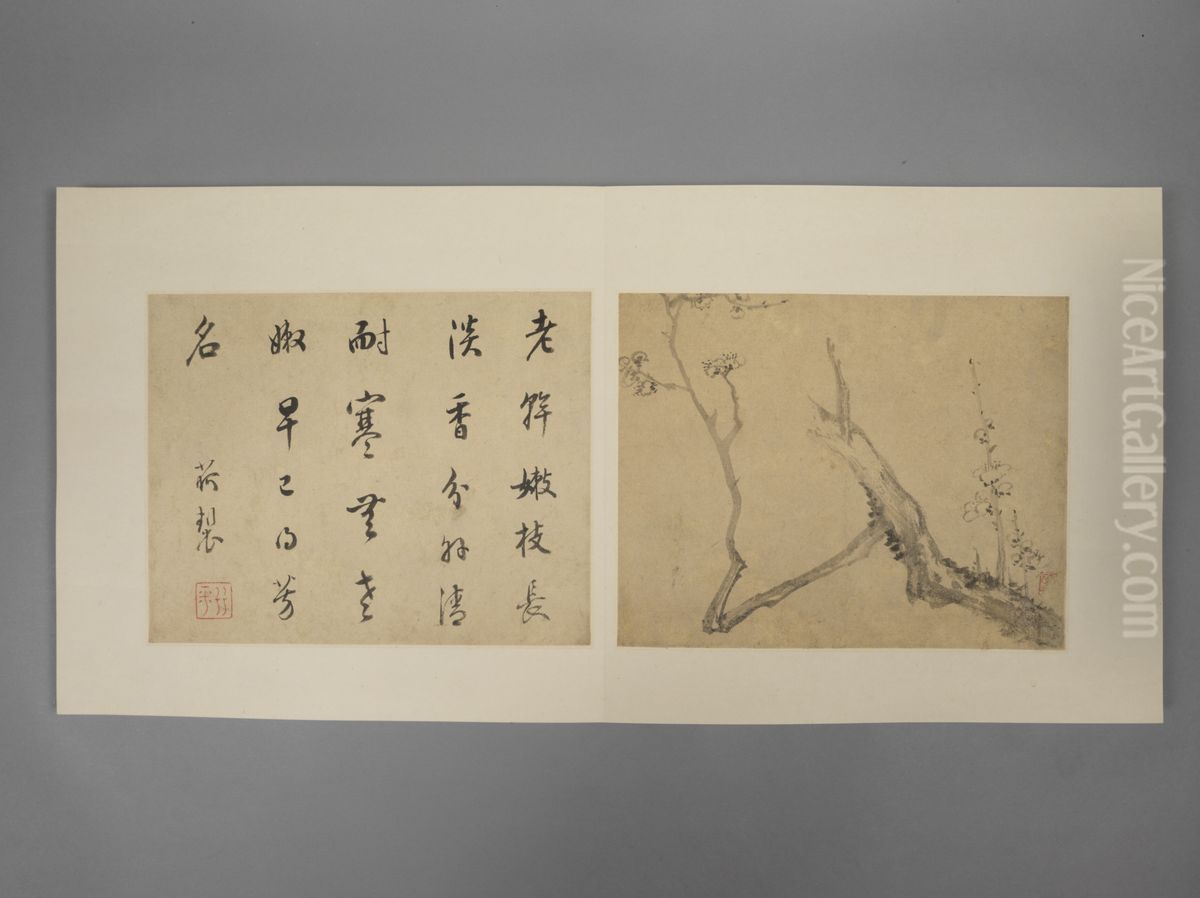 老幹嫩枝長
淡香分外清
耐寒無老
嫩早已得芳
名
荷製
NiceArtGallery.com